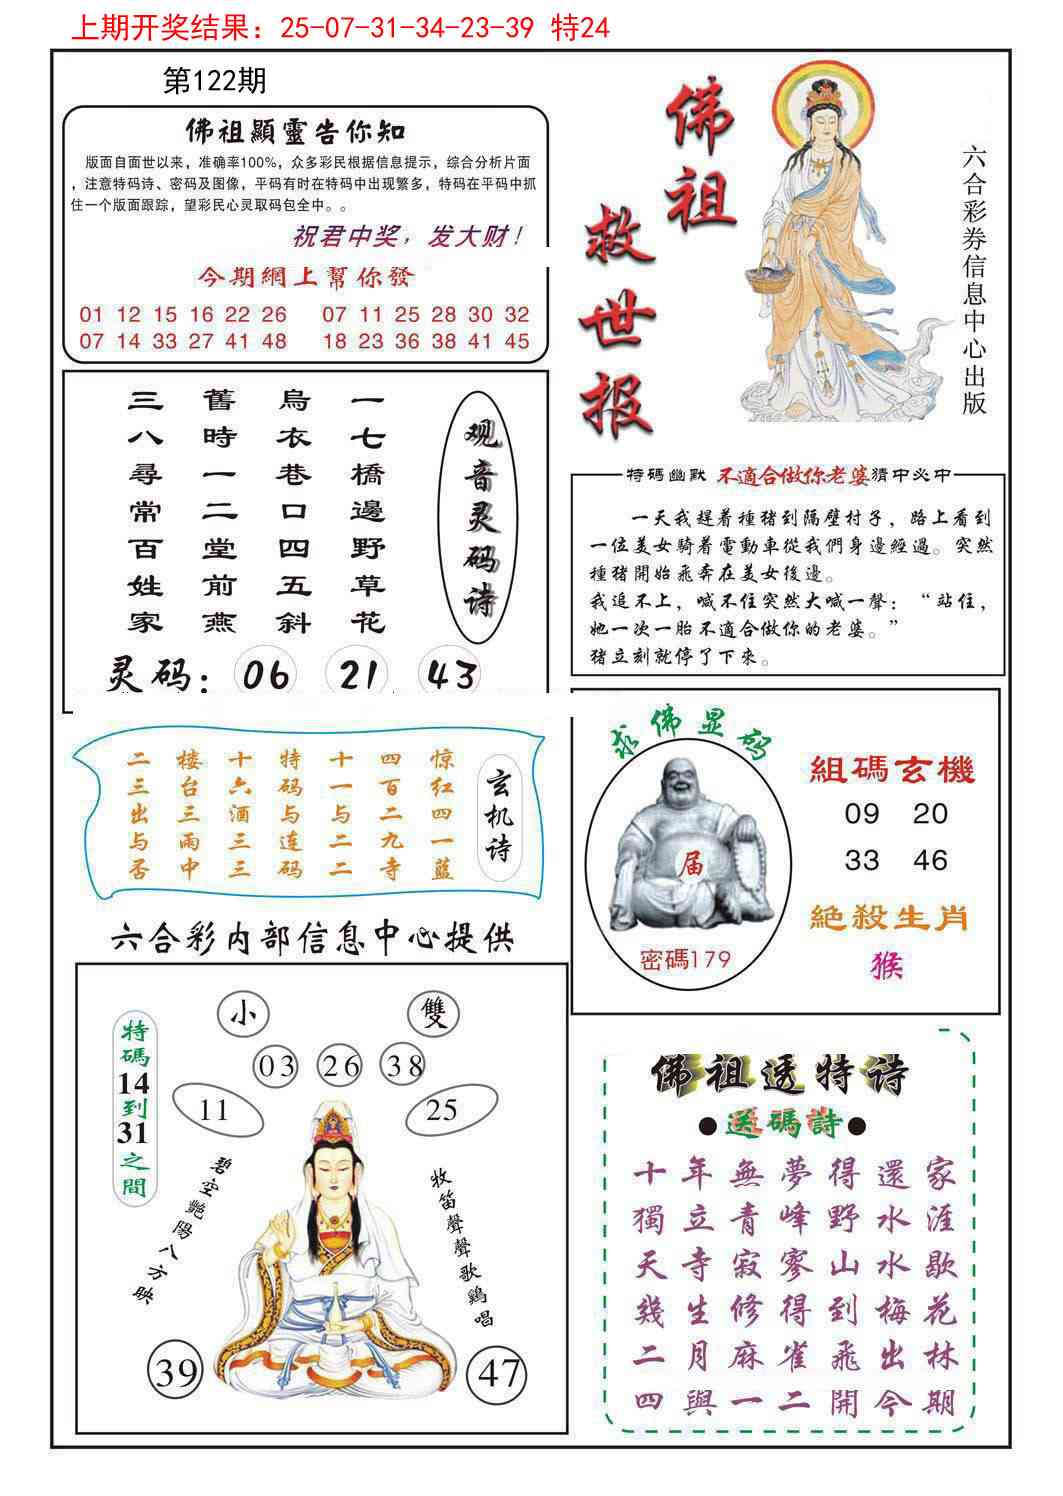 上期开奖结果：25-07-31-34-23-39 特24
第122期
佛祖顯靈告你知
版面自面世以来，准确率100%，众多彩民根据信息提示，综合分析片面
，注意特码诗、密码及图像，平码有时在特码中出现繁多，特码在平码中抓
住一个版面跟踪，望彩民心灵取码包全中。。
祝君中奖，发大财！
今期網上幫你發
01 12 15 16 22 26 07 11 25 28 30 32
07 14 33 27 41 48 18 23 36 38 41 45
佛祖
救世报
六合彩券信息中心出版
观音灵码诗
一七橋邊野草花
烏衣巷口四五斜
舊時一二堂前燕
三八尋常百姓家
灵码：06 21 43
特碼幽默 不適合做你老婆猜中必中
一天我趕着種猪到隔壁村子，路上看到
一位美女騎着電動車從我們身邊經過。突然
種猪開始飛奔在美女後邊。
我追不上，喊不住突然大喊一聲：“站住，
她一次一胎不適合做你的老婆。”
猪立刻就停了下來。
玄机诗
惊红四一蓝
四百二九寺
十一与二二
特码与连码
十六酒三三
楼台三雨中
二三出与否
求佛显码
届
密碼179
組碼玄機
09 20
33 46
絕殺生肖
猴
六合彩内部信息中心提供
特碼14到31之間
小
雙
03 26 38
11
25
碧空艷陽八方映
牧笛聲聲歌鷄唱
39
47
佛祖透特诗
●送碼詩●
十年無夢得還家
獨立青峰野水涯
天寺寂寥山水歇
幾生修得到梅花
二月麻雀飛出林
四與一二開今期